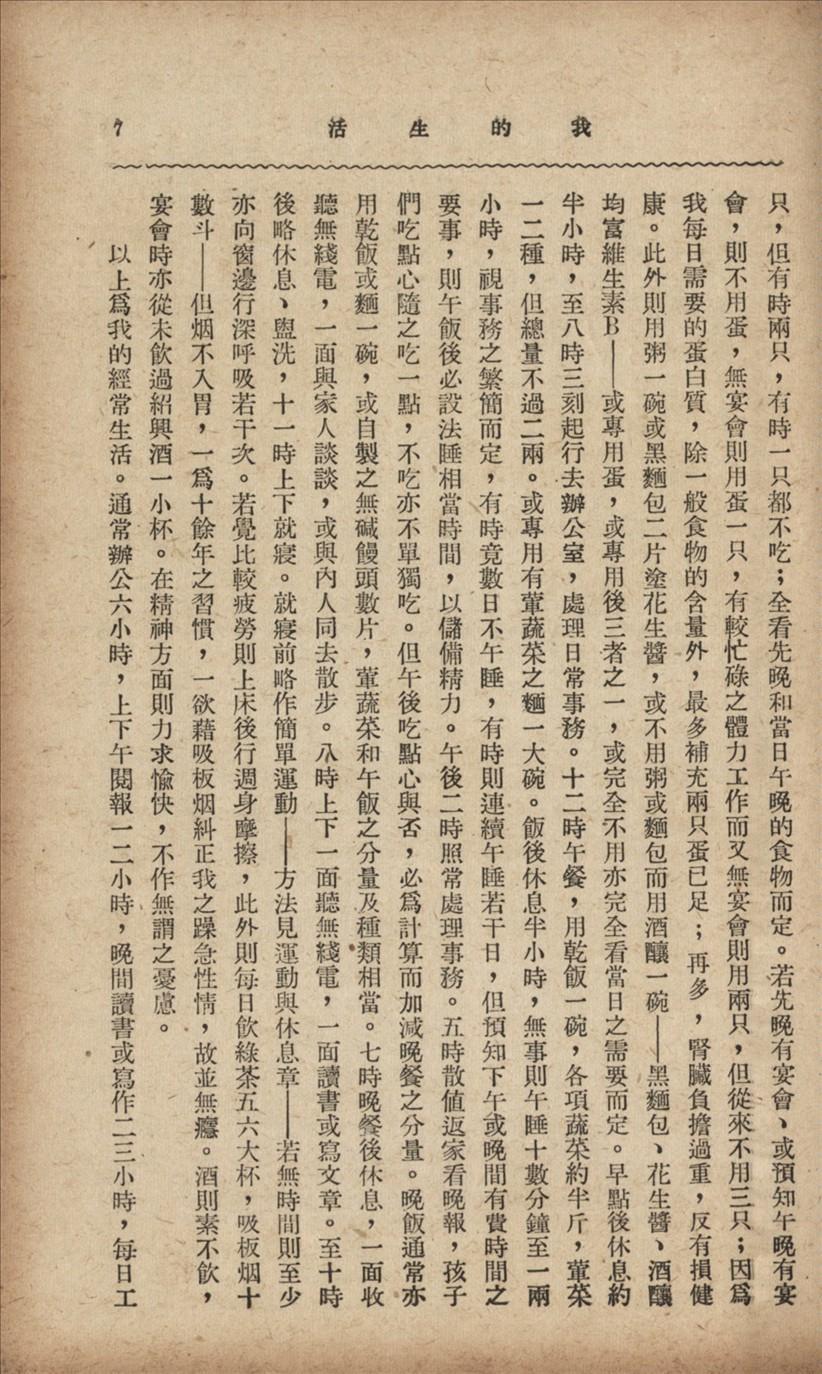 我的生活
7
只，但有時兩只，有時一只都不吃；全看先晚和當日午晚的食物而定。若先晚有宴會、或預知午晚有宴
會，則不用蛋，無宴會則用蛋一只，有較忙碌之體力工作而又無宴會則用兩只，但從來不用三只；因爲
我每日需要的蛋白質，除一般食物的含量外，最多補充兩只蛋已足；再多，腎臟負擔過重，反有損健
康。此外則用粥一碗或黑麵包二片塗花生醬，或不用粥或麵包而用酒釀一碗——黑麵包、花生醬、酒釀
均富維生素B——或專用蛋，或專用後三者之一，或完全不用亦完全看當日之需要而定。早點後休息約
半小時，至八時三刻起行去辦公室，處理日常事務。十二時午餐，用乾飯一碗，各項蔬菜約半斤，葷菜
一二種，但總量不過二兩。或專用有葷蔬菜之麵一大碗。飯後休息半小時，無事則午睡十數分鐘至一兩
小時，視事務之繁簡而定，有時竟數日不午睡，有時則連續午睡若干日，但預知下午或晚間有費時間之
要事，則午飯後必設法睡相當時間，以儲備精力。午後二時照常處理事務。五時散值返家看晚報，孩子
們吃點心隨之吃一點，不吃亦不單獨吃。但午後吃點心與否，必爲計算而加減晚餐之分量。晚飯通常亦
用乾飯或麵一碗，或自製之無碱饅頭數片，葷蔬菜和午飯之分量及種類相當。七時晚餐後休息，一面收
聽無綫電，一面與家人談談，或與內人同去散步。八時上下一面聽無綫電，一面讀書或寫文章。至十時
後略休息、盥洗，十一時上下就寢。就寢前略作簡單運動——方法見運動與休息章——若無時間則至少
亦向窗邊行深呼吸若干次。若覺比較疲勞則上床後行週身摩擦，此外則每日飲綠茶五六大杯，吸板烟十
數斗——但烟不入胃，一爲十餘年之習慣，一欲藉吸板烟糾正我之躁急性情，故並無癮。酒則素不飲，
宴會時亦從未飲過紹興酒一小杯。在精神方面則力求愉快，不作無謂之憂慮。
以上爲我的經常生活。通常辦公六小時，上下午閱報一二小時，晚間讀書或寫作二三小時，每日工